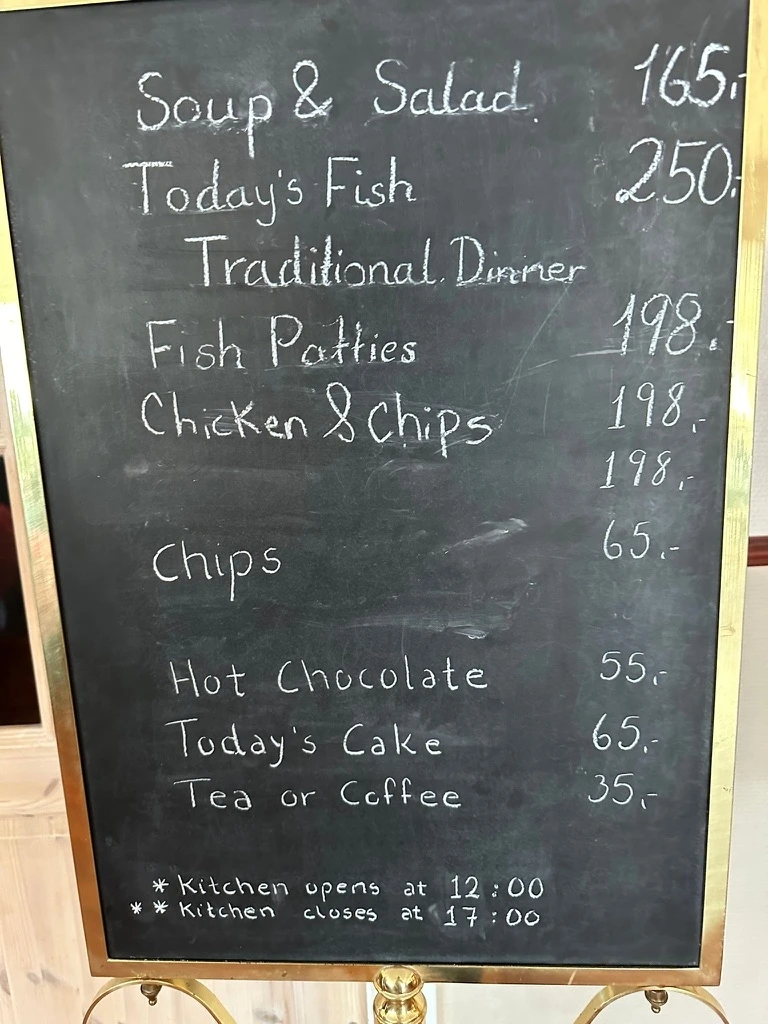 Soup & Salad. 165,-
Today's Fish 250,-
Traditional Dinner
Fish Patties 198,-
Chicken & Chips 198,-
198,-
Chips 65,-
Hot Chocolate 55,-
Today's Cake 65,-
Tea or Coffee 35,-
* Kitchen opens at 12:00
** Kitchen closes at 17:00